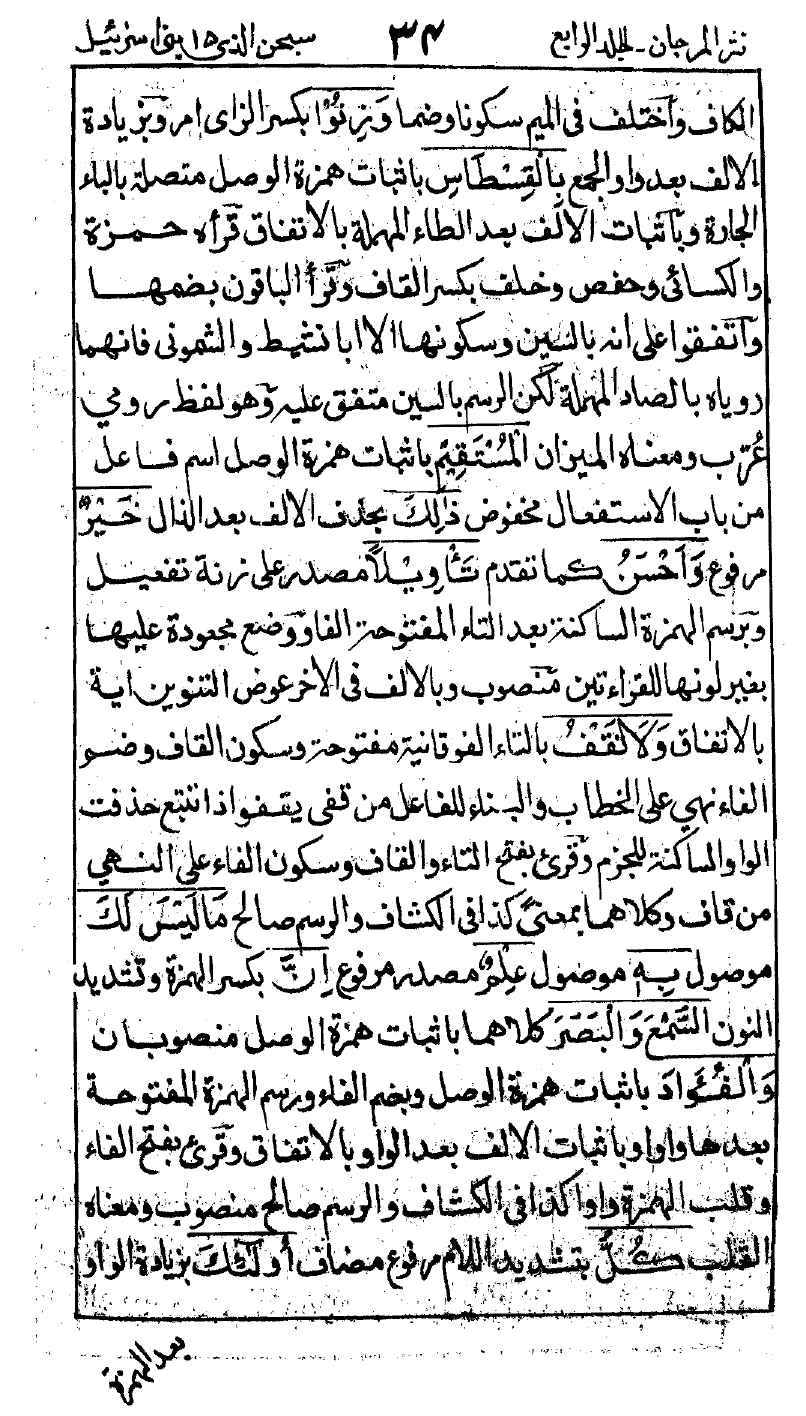 نثر المرجان ـ الجلد الرابع ٣٤ سبحن الذي ١٥ بنى اسرئيل
الكاف واختلف فى الميم سكونا وضما وَزِنُوْا بكسر الزاى امر وبزيادة
الالف بعد واو الجمع بِالْقِسْطَاسِ باثبات همزة الوصل متصلة بالباء
الجارة وباثبات الالف بعد الطاء المهملة بالاتفاق قرأه حمزة
والكسائى وحفص وخلف بكسر القاف وقرأ الباقون بضمها
واتفقوا على انه بالسين وسكونها الا ابا نشيط والشمونى فانهما
روياه بالصاد المهملة لكن الرسم بالسين متفق عليه وهو لفظ رومي
عُرّب ومعناه الميزان الْمُسْتَقِيْمِ باثبات همزة الوصل اسم فاعل
من باب الاستفعال مخفوض ذٰلِكَ بحذف الالف بعد الذال خَيْرٌ
مرفوع وَاَحْسَنُ كما تقدم تَأْوِيْلًا مصدر على زنة تفعيل
وبرسم الهمزة الساكنة بعد التاء المفتوحة الفا ووضع مجعودة عليها
بغير لونها للقراءتين منصوب وبالالف فى الاخر عوض التنوين اية
بالاتفاق وَلَا تَقْفُ بالتاء الفوقانية مفتوحة وسكون القاف وضم
الفاء نهي على الخطاب والبناء للفاعل من قفى يقفو اذا تتبع حذفت
الواو الساكنة للجزم وقرئ بفتح التاء والقاف وسكون الفاء على النهي
من قاف وكلاهما بمعنىً كذا فى الكشاف والرسم صالح مَا لَيْسَ لَكَ
موصول بِهٖ موصول عِلْمٌ مصدر مرفوع اِنَّ بكسر الهمزة وتشديد
النون السَّمْعَ وَالْبَصَرَ كلاهما باثبات همزة الوصل منصوبان
وَالْفُؤَادَ باثبات همزة الوصل وبضم الفاء ورسم الهمزة المفتوحة
بعدها واوا وباثبات الالف بعد الواو بالاتفاق وقرئ بفتح الفاء
وقلب الهمزة واوا كذا فى الكشاف والرسم صالح منصوب ومعناه
القلب كُلُّ بتشديد اللام مرفوع مضاف أُولٰئِكَ بزيادة الواو
بعد الهمزة